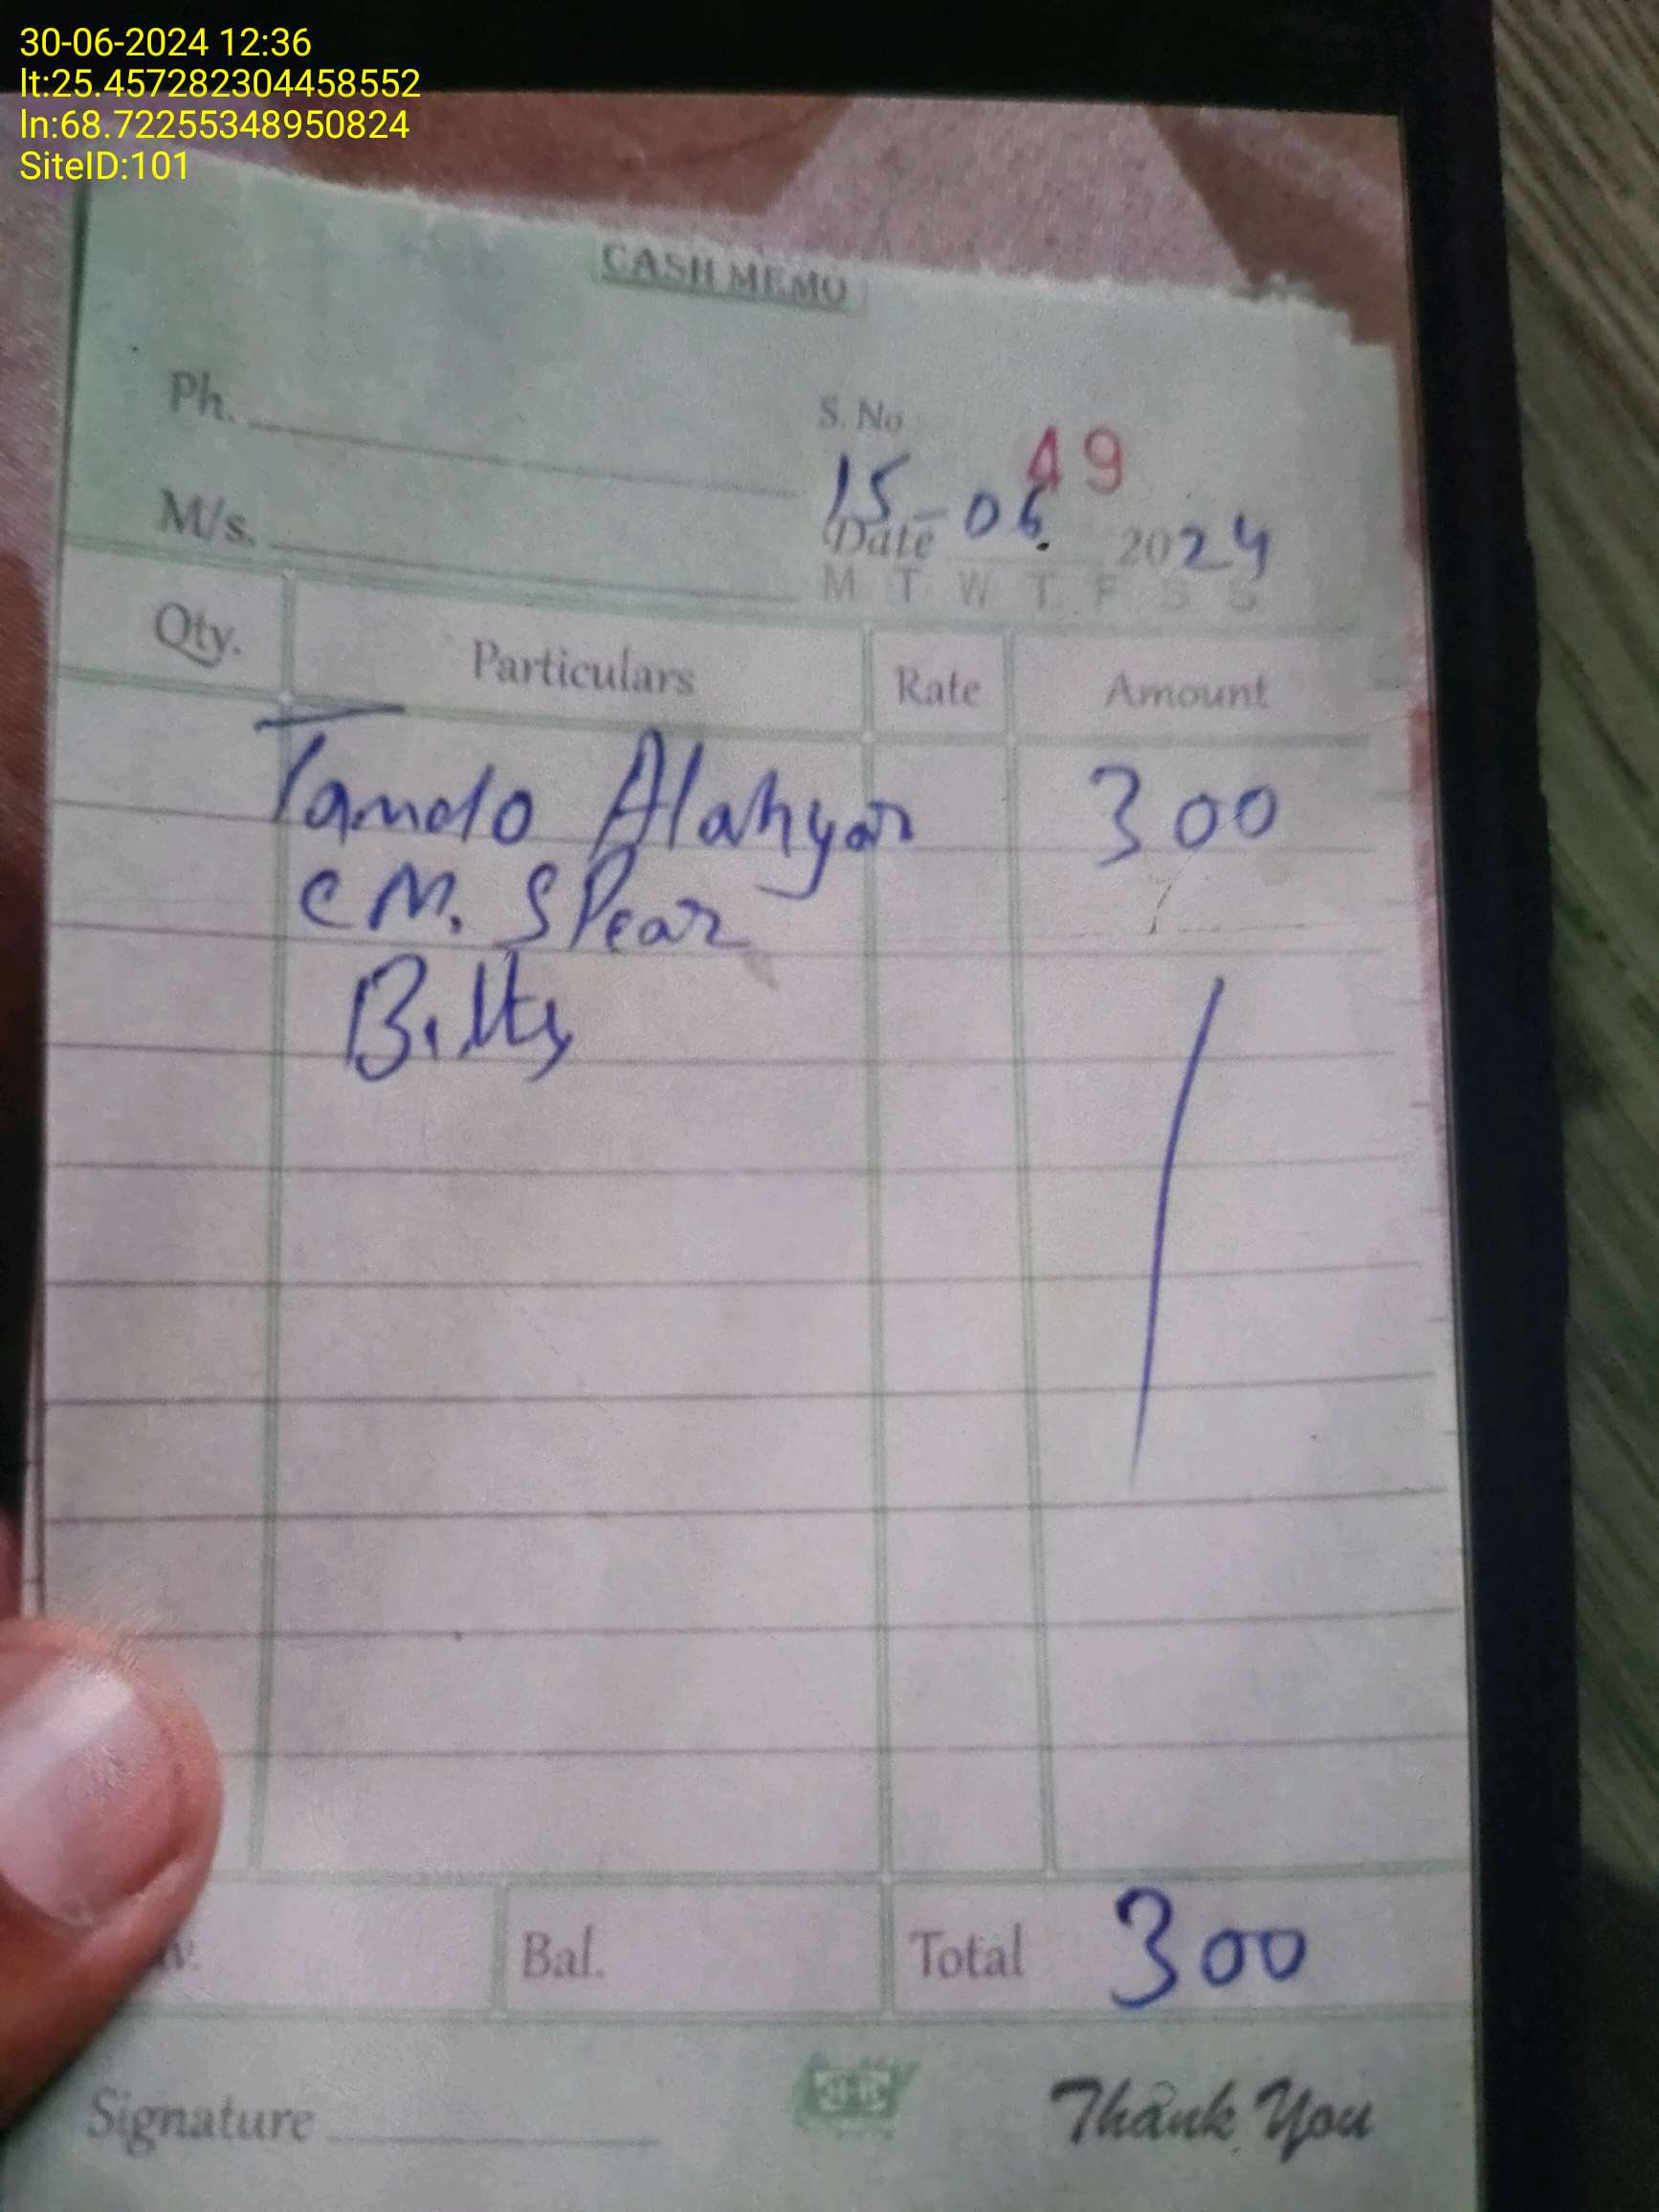 30-06-2024 12:36
lt:25.457282304458552
ln:68.72255348950824
SiteID:101
CASH MEMO
Ph.
S. No 49
M/s.
Date 15-06 2024
M T W T F S S
Qty. Particulars Rate Amount
Tando Alahyar 300
CM. SPear
Bilty
Bal. Total 300
Signature Thank You